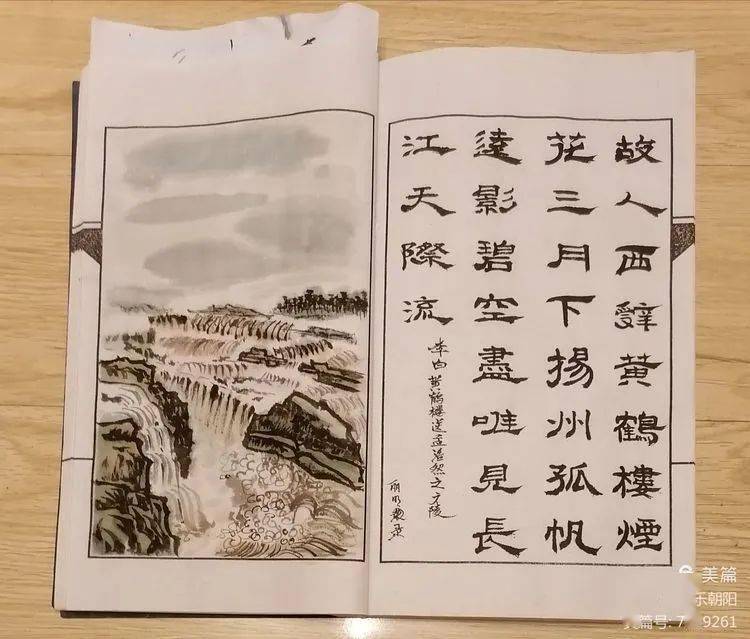 故人西辭黄鶴樓煙
花三月下揚州孤帆
遠影碧空盡唯見長
江天際流
李白黄鹤樓送孟浩然之广陵
美篇
乐朝阳
篇号: 7 9261